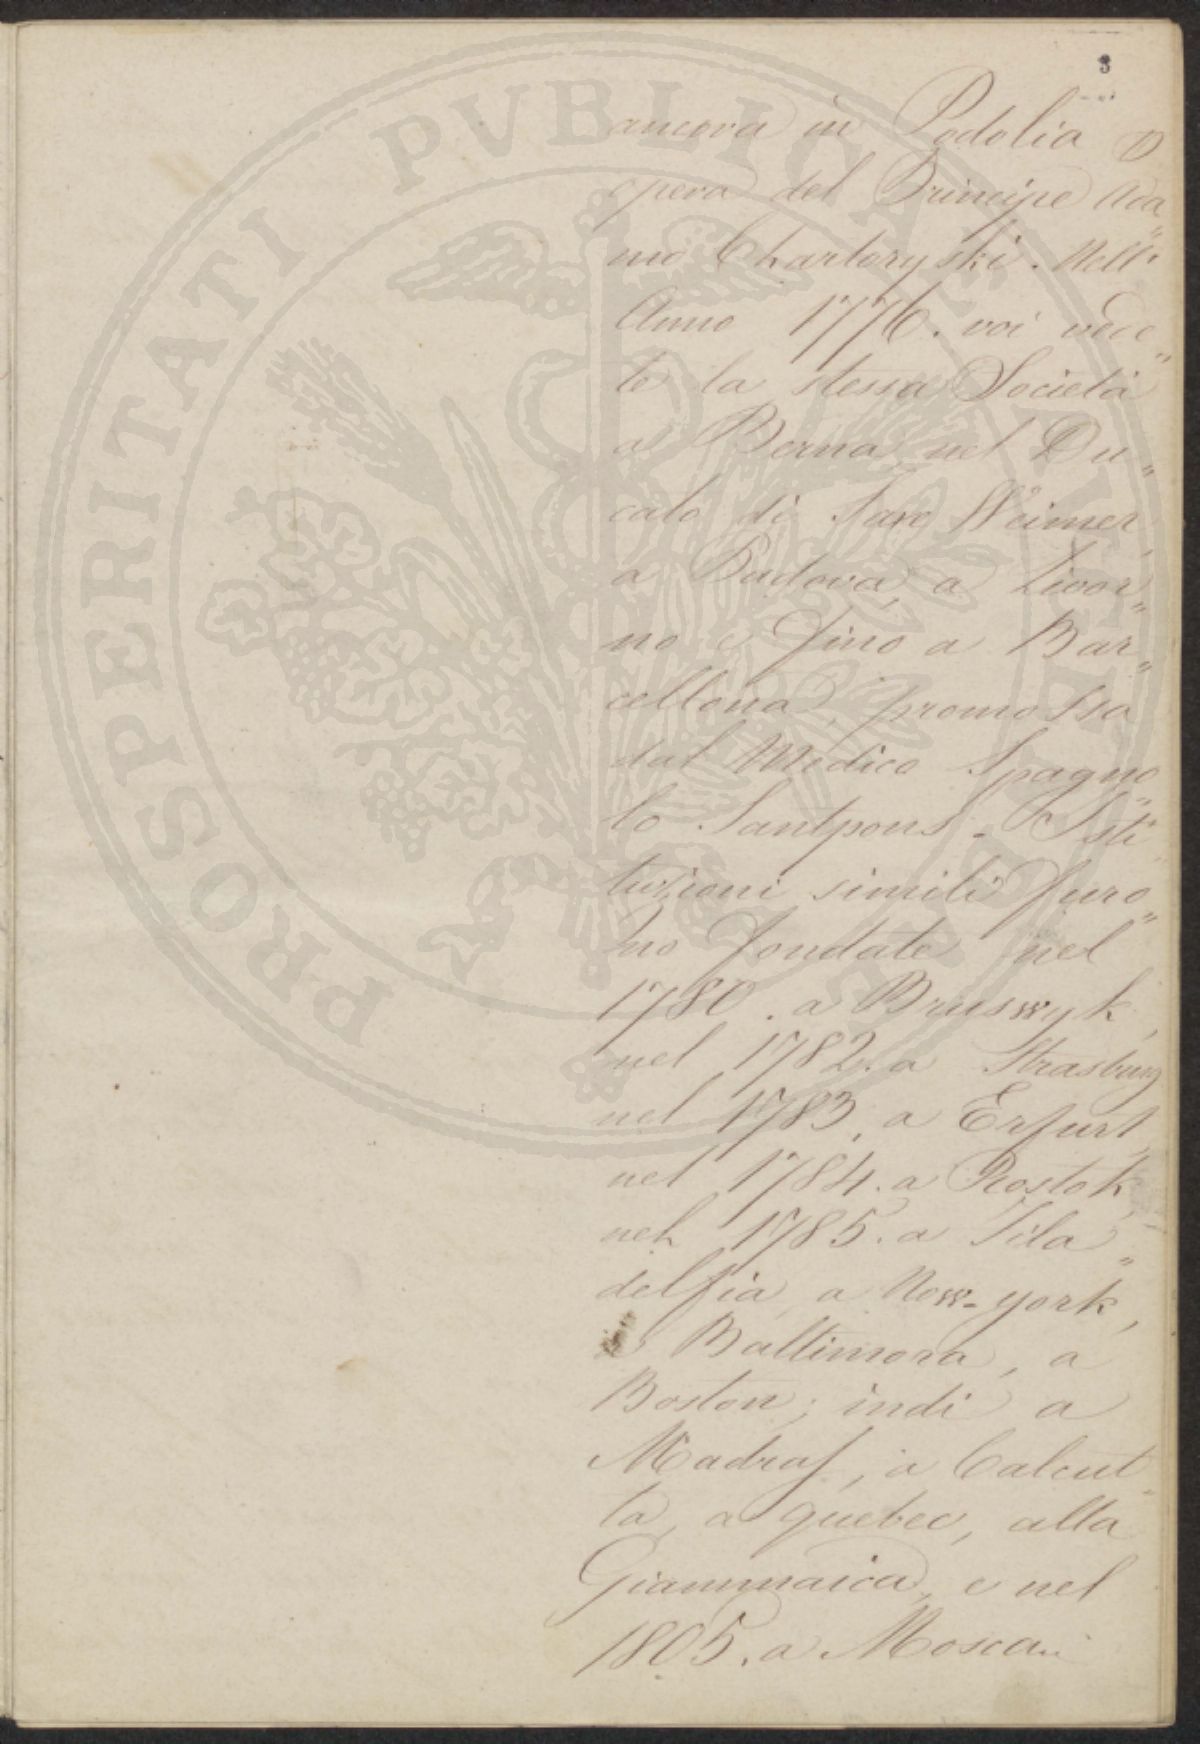 3
ancora in Podolia p
opera del Principe Ada„
mo Chartoryski. Nell'
Anno 1776. voi vede„
te la stessa Società
a Berna nel Du„
cato di Saxe Weimer,
a Padova, a Livor„
no e fino a Bar„
cellona, promossa
dal Medico Spagno„
lo Santpons. Isti„
tuzioni simili furo„
no fondate nel
1780. a Brusswyk,
nel 1782. a Strasburg
nel 1783, a Erfurt,
nel 1784. a Rostok,
nel 1785. a Fila„
delfia, a New-york,
a Baltimora, a
Boston; indi a
Madras, a Calcut„
ta, a quebec, alla
Giammaica, e nel
1805. a Mosca.
PROSPERITATI PVBLICAE